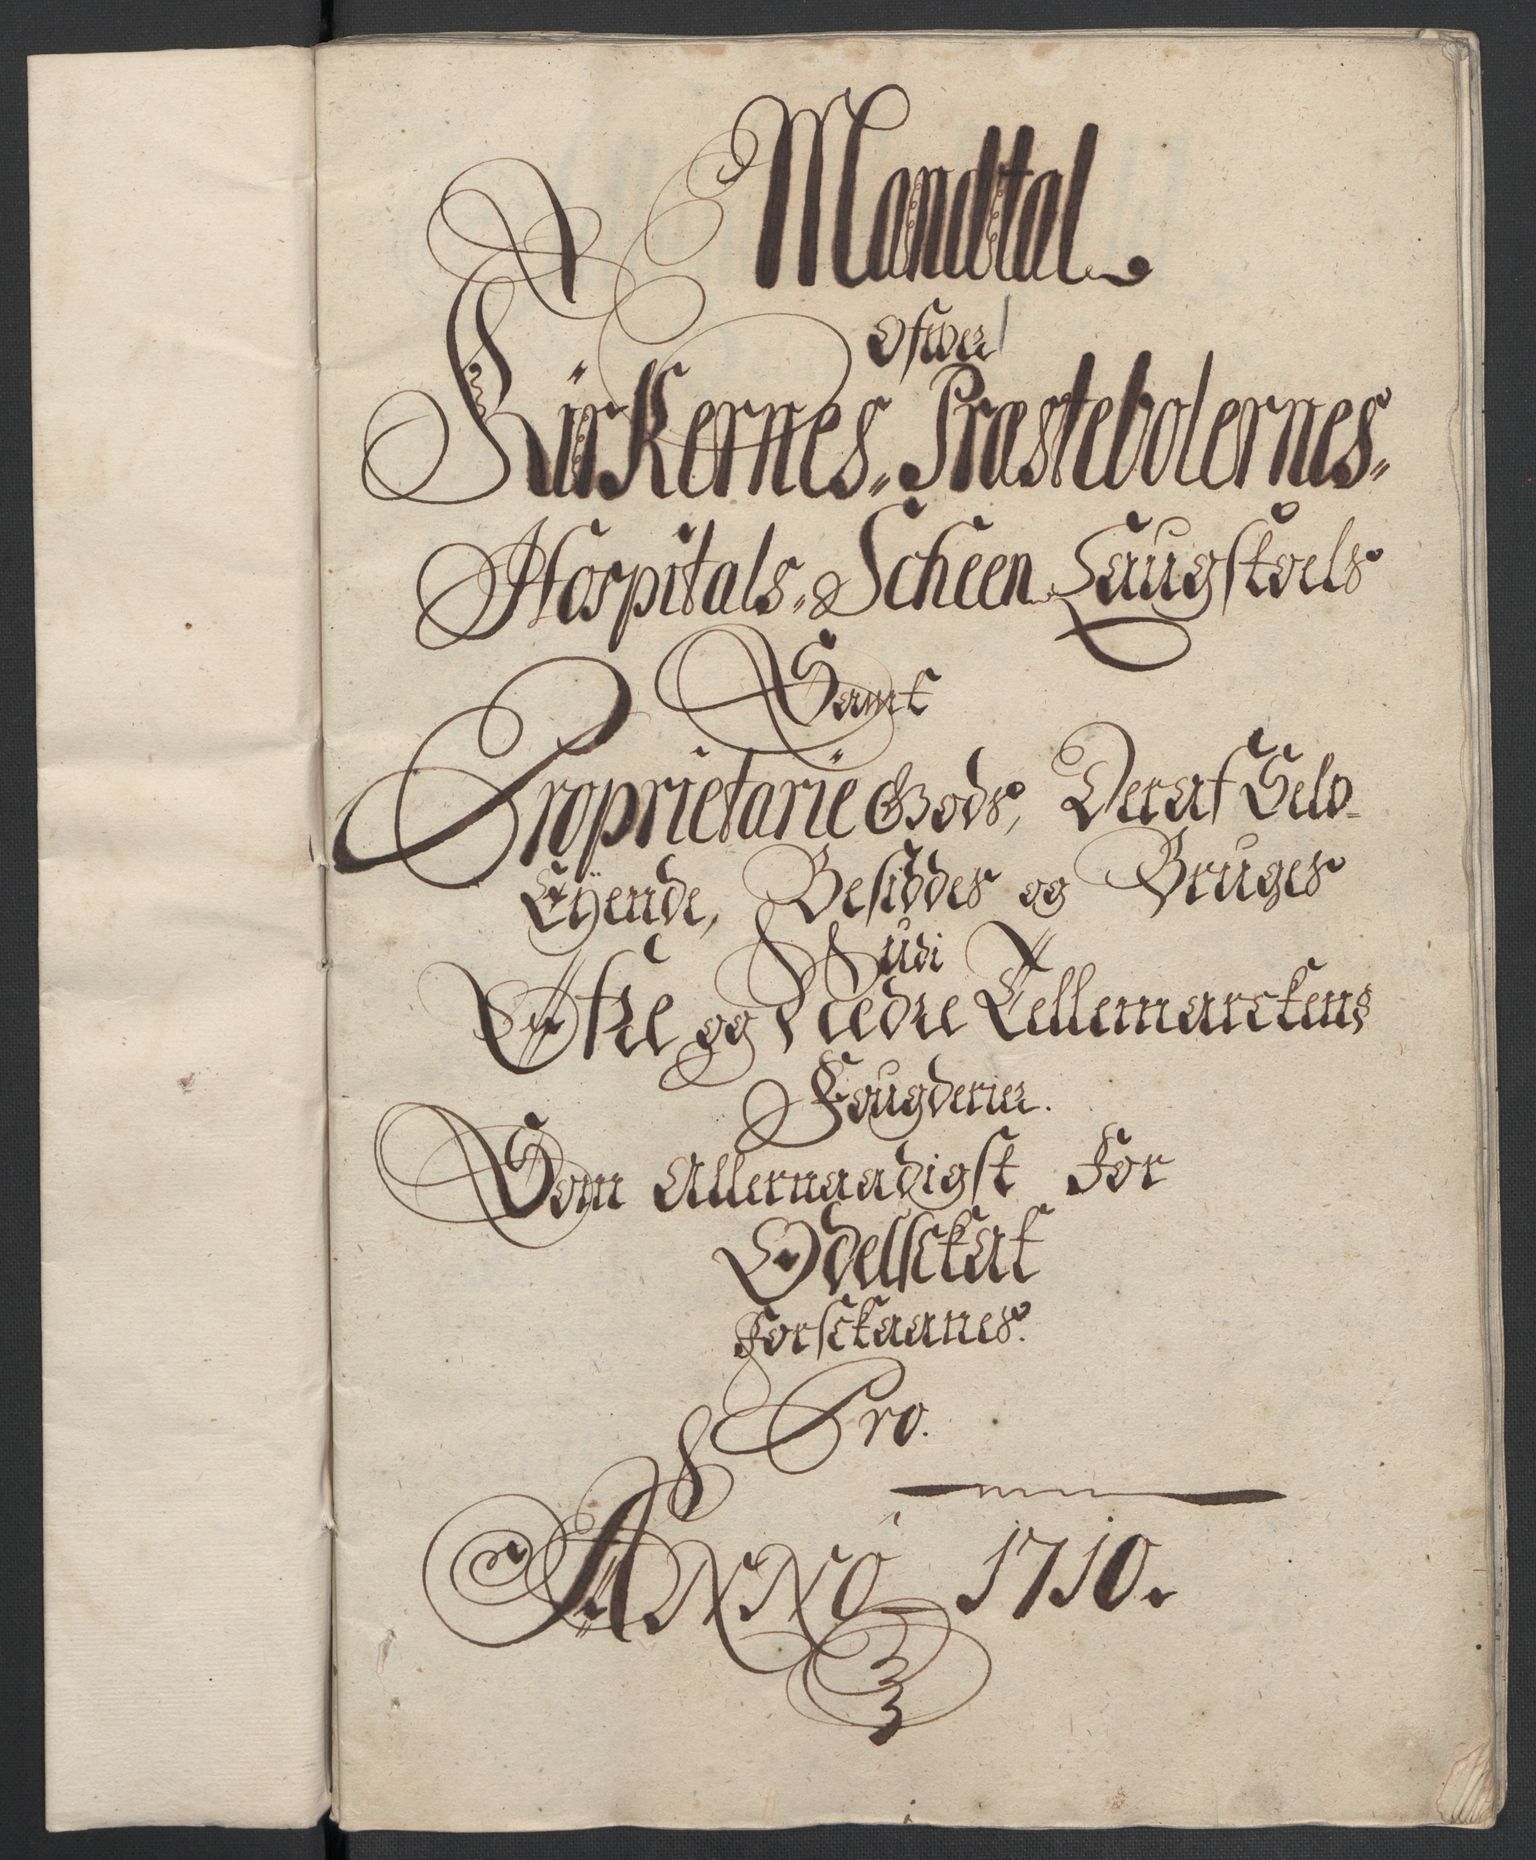 Mandtal
Ofwer
Kürkernes, Præstebolernes,
Hospitals, Scheen Laugstoels
Samt
Proprietarie Gods, Deraf Selv
Eyende, Besiddes og Bruges
Udi
Øfre og Nedre Tellemarckens
Fougderier.
Som Allernaadigst for
Odelsckat
Forsckaanes.
Pro.
ANNO 1710.